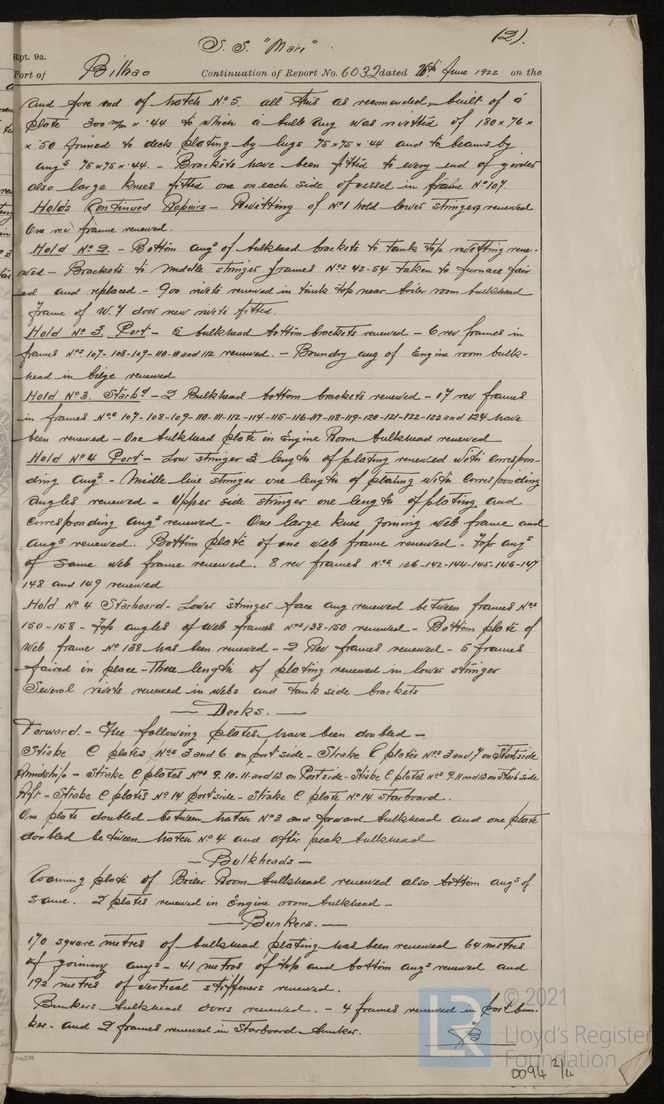 (2).
S. S. "Mari"
Rpt. 9a.
Port of Bilbao Continuation of Report No. 6032 dated 26th June 1922 on the
and fore end of hatch Nº 5. all this as recomended, built of a
plate 300 m/m x .44 to which a bulb ang was rivetted of 180 x 76 x
x .50 joined to deck plating by lugs 75 x 75 x 44 and to beams by
angs 75 x 75 x .44. - Brackets have been fitted to every end of girder
also large knees fitted one on each side of vessel in frame Nº 107.
Holds Continued Repairs - Rivetting of Nº 1 hold lower stringers renewed
One rev frame renewed.
Hold Nº 2. - Bottom angs of bulkhead brackets to tank top rivetting rene-
wed - Brackets to middle stringer frames Nºs 42-54 taken to furnace fair
ed and replaced - 900 rivets renewed in tank top near boiler room bulkhead
frame of W.T door new rivets fitted.
Hold Nº 3. Port - 5 bulkhead bottom brackets renewed - 6 rev frames in
frames Nºs 107-108-109-110-111 and 112 renewed. - Boundry ang of Engine room bulk-
head in bilge renewed
Hold Nº 3. Starbd - 2 Bulkhead bottom brackets renewed - 17 rev frames
in frames Nºs 107-108-109-110-111-112-114-115-116-117-118-119-120-121-122-123 and 124 have
been renewed - One bulkhead plate in Engine Room bulkhead renewed
Hold Nº 4 Port - Low stringer 3 length of plating renewed with correspon-
ding angs - Middle line stringer one length of plating with corresponding
angles renewed - Upper side stringer one length of plating and
corresponding angs renewed - One large knee joining web frame and
angs renewed. Bottom plate of one web frame renewed. Top angs
of same web frame renewed. 8 rev frames Nºs 136-142-144-145-146-147
148 and 149 renewed
Hold Nº 4 Starboard - Lower stringer face ang renewed between frames Nºs
150-158 - Top angles of Web frames Nºs 138-150 renewed - Bottom plate of
Web frame Nº 138 has been renewed - 2 Rev frames renewed - 5 frames
faired in place - Three length of plating renewed in lower stringer
Several rivets renewed in webs and tank side brackets
- Decks. -
Forward. - The following plates have been doubled -
Strake C plates Nºs 3 and 6 on port side - Strake C plates Nºs 3 and 7 on Starb side
Amidship - Strake C plates Nºs 9. 10. 11. and 13 on Port side - Strake C plates Nºs 9. 11 and 13 on Starb side
Aft - Strake C plates Nº 14 port side - Strake C plate Nº 14 starboard.
One plate doubled between hatch Nº 3 and forward bulkhead and one plate
doubled between hatch Nº 4 and after peak bulkhead
- Bulkheads -
Coaming plate of Boiler Room bulkhead renewed also bottom angs of
same. 2 plates renewed in Engine room bulkhead -
- Bunkers. -
170 square metres of bulkhead plating has been renewed 64 metres
of joining angs - 41 metres of top and bottom angs renewed and
192 metres of vertical stiffeners renewed.
Bunkers bulkhead doors renewed. - 4 frames renewed in port bun-
ker. and 2 frames renewed in Starboard bunker.
LR
© 2021
Lloyd's Register
Foundation
0094 2/4